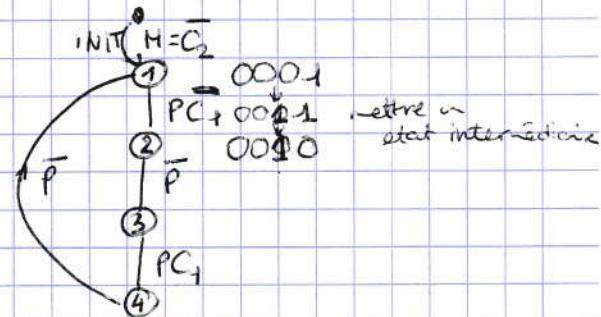 INIT H=C̅₂
1 0001
PC̅₁ 0011 mettre un
état intermédiaire
2 0010
P̅ P̅
3
PC₁
4